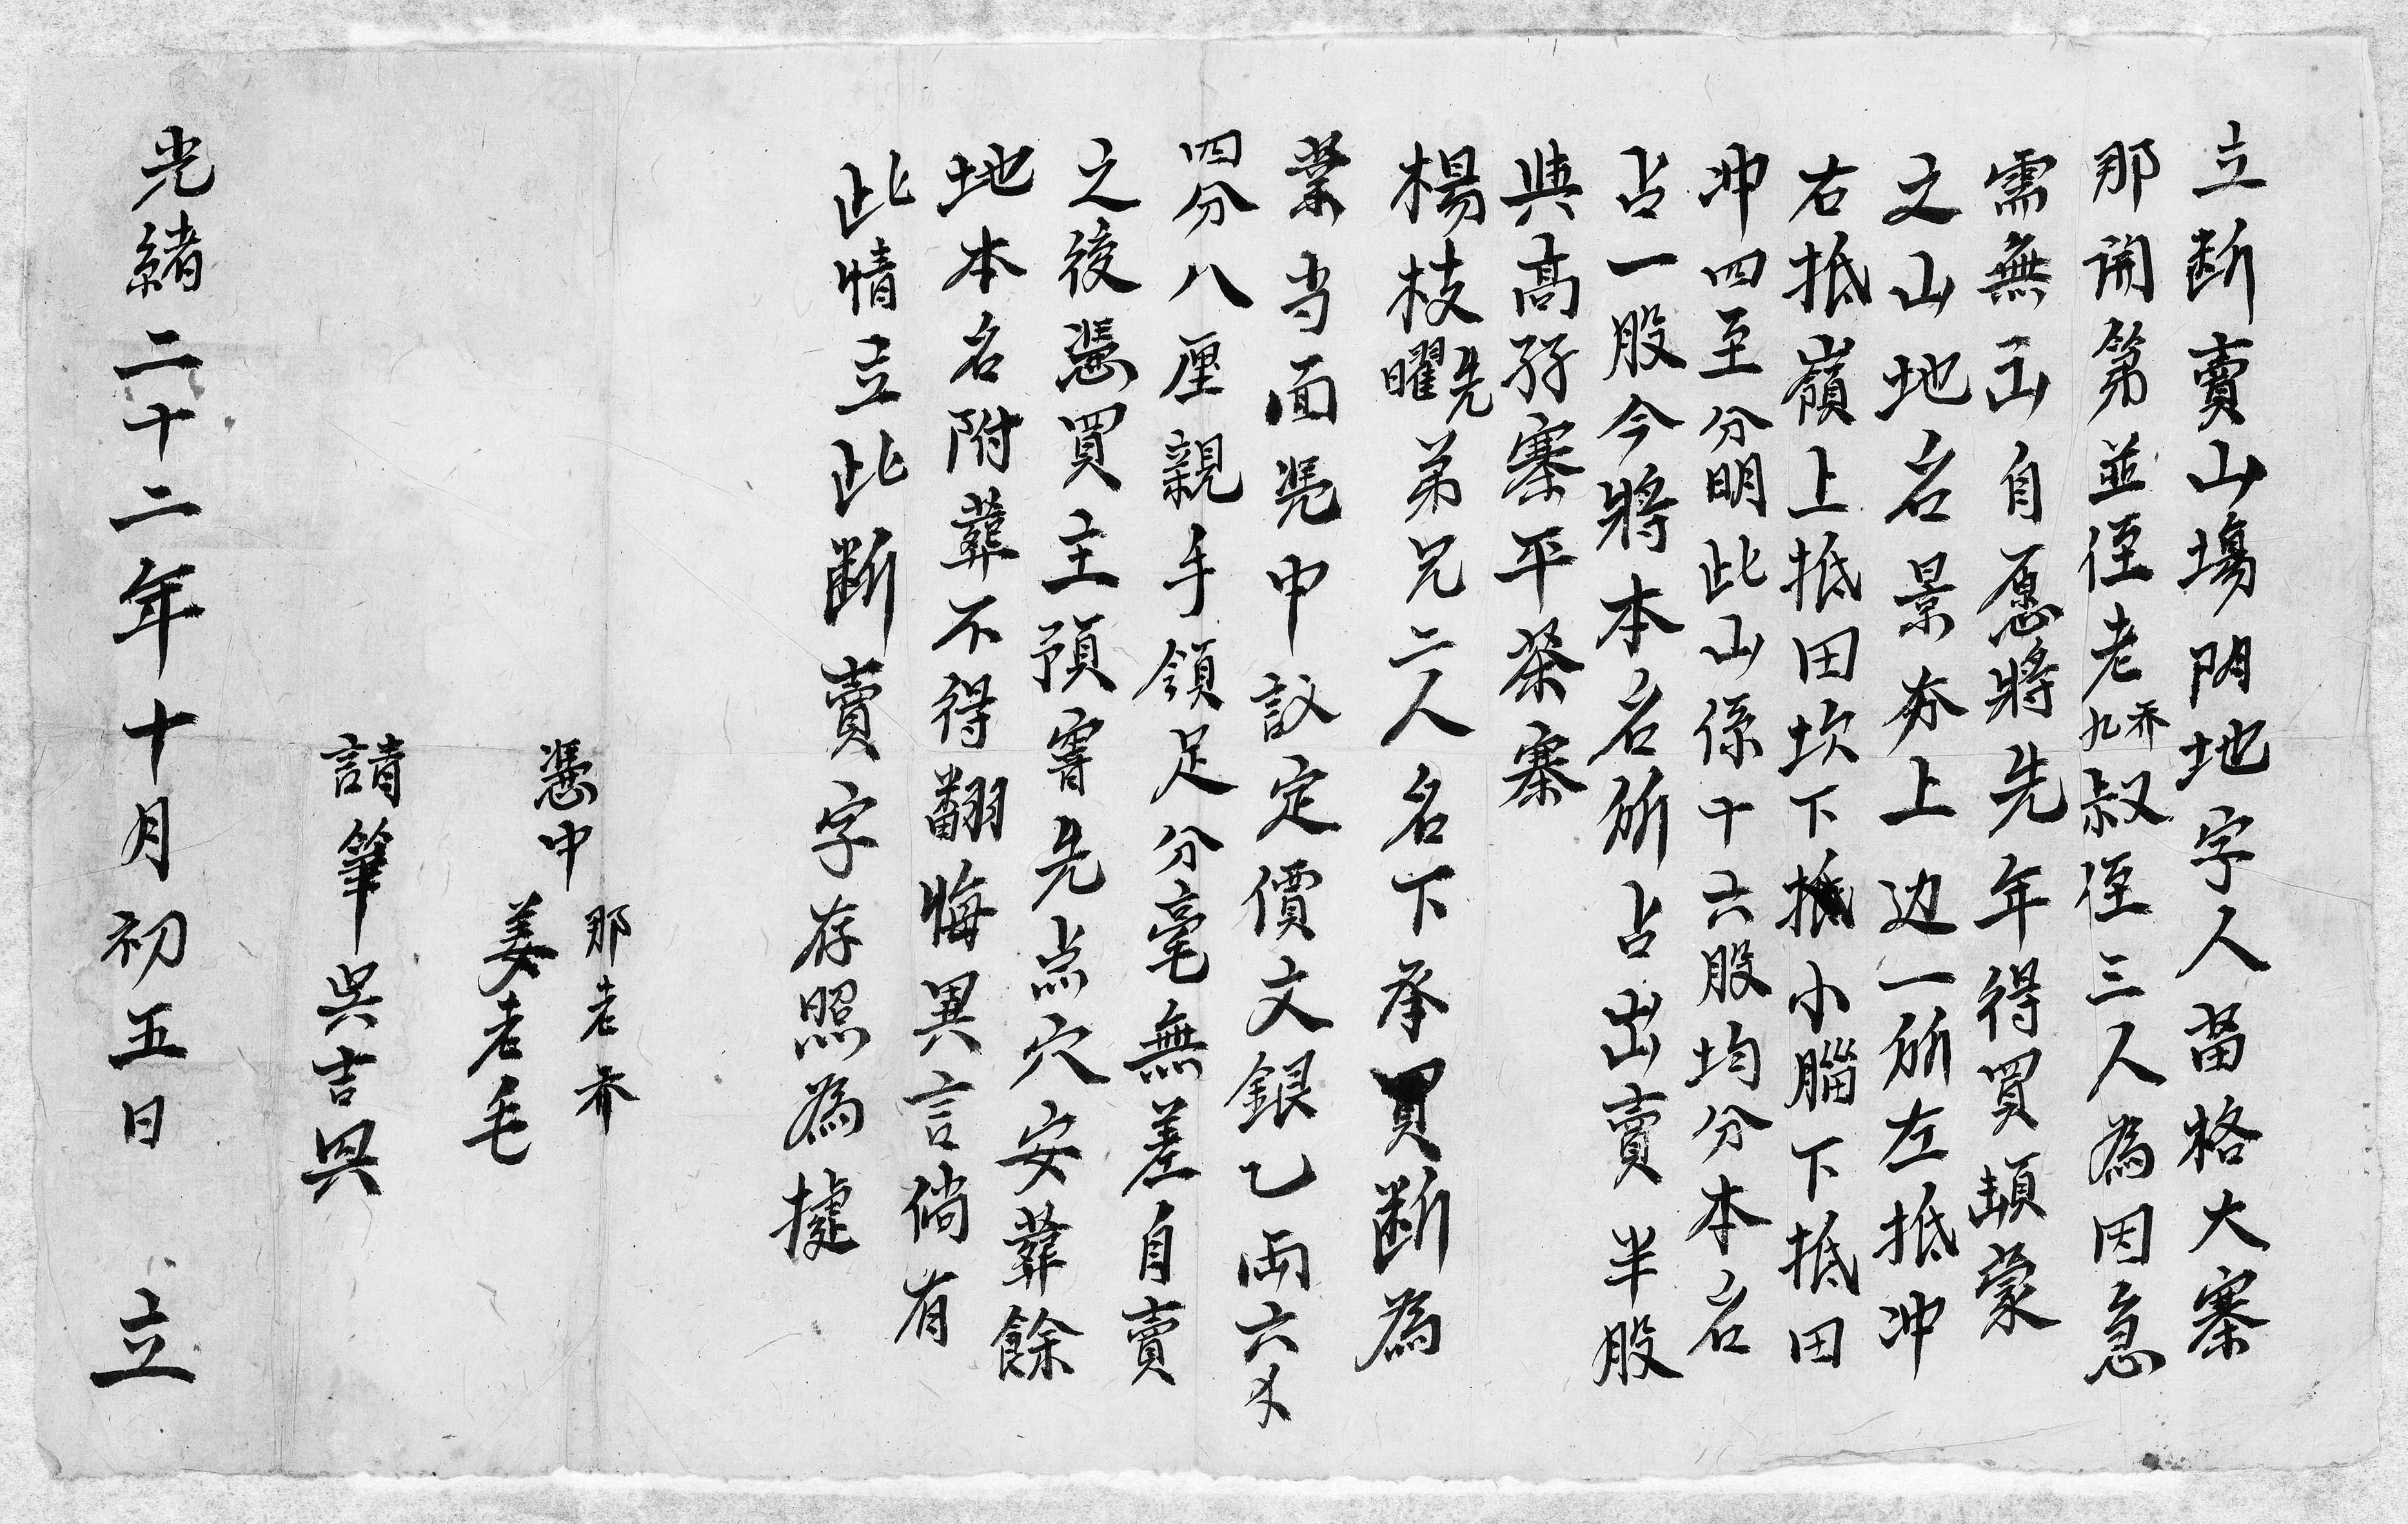 立断賣山塲阴地字人畨格大寨
那開第並侄老喬九叔侄三人為因急
需無出自愿將先年得買頡蒙
之山地名景夯上边一所左抵冲
右抵嶺上抵田坎下抵小腦下抵田
冲四至分明此山係十六股均分本名
占一股今將本名所占出賣半股
與高孖寨平荣寨
楊枝先曜弟兄二人名下承買断為
業当面凴中議定價文銀乙両六才
四分八厘親手領足分毫無差自賣
之後憑買主預寄先点穴安葬餘
地本名附葬不得翻悔異言倘有
此情立此断賣字存照為據
憑中 那老喬
姜老毛
請筆吳吉興
光緒二十二年十月初五日 立